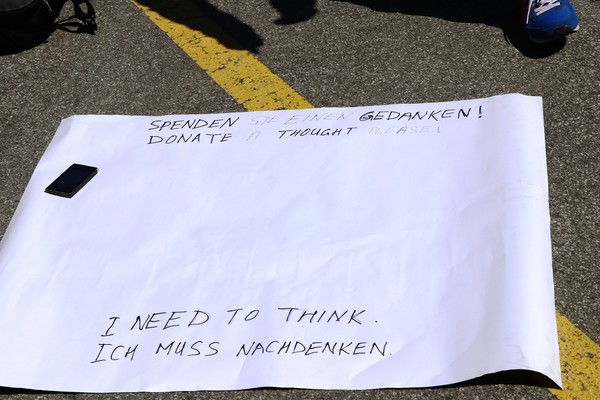 SPENDEN SIE EINEN GEDANKEN!
DONATE A THOUGHT PLEASE!
I NEED TO THINK.
ICH MUSS NACHDENKEN.